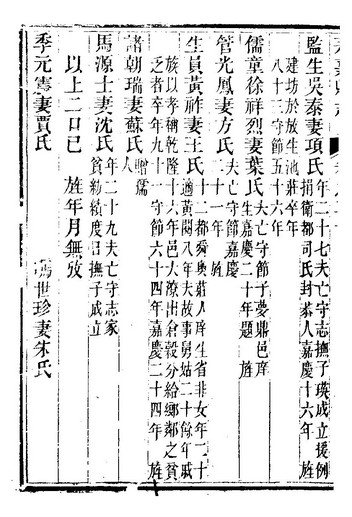 監生吳泰妻項氏
年二十七夫亡守志撫子瑛成立援例
捐衛都司氏封恭人嘉慶十六年
建坊於放生池莊卒年
八十三守節五十六年
儒童徐祥烈妻葉氏
夫亡守節子夢鼎邑庠
生嘉慶二十年題 旌
管光鳳妻方氏
夫亡守節嘉慶
二十一年 旌
生員黃祚妻王氏
十二都舜奧莊人庠生省非女年二十
適黃閱八年夫故事舅姑二十餘年戚
族以孝稱乾隆十六年邑大潦出倉穀分給鄉鄰之貧
乏者卒年九十一守節六十四年嘉慶二十四年 旌
諸朝瑞妻蘇氏
贈孺
人
馬源士妻沈氏
年二十九夫亡守志家
貧紡績度日撫子成立
以上二口已 旌年月無攷
季元妻賈氏 馮世珍妻朱氏